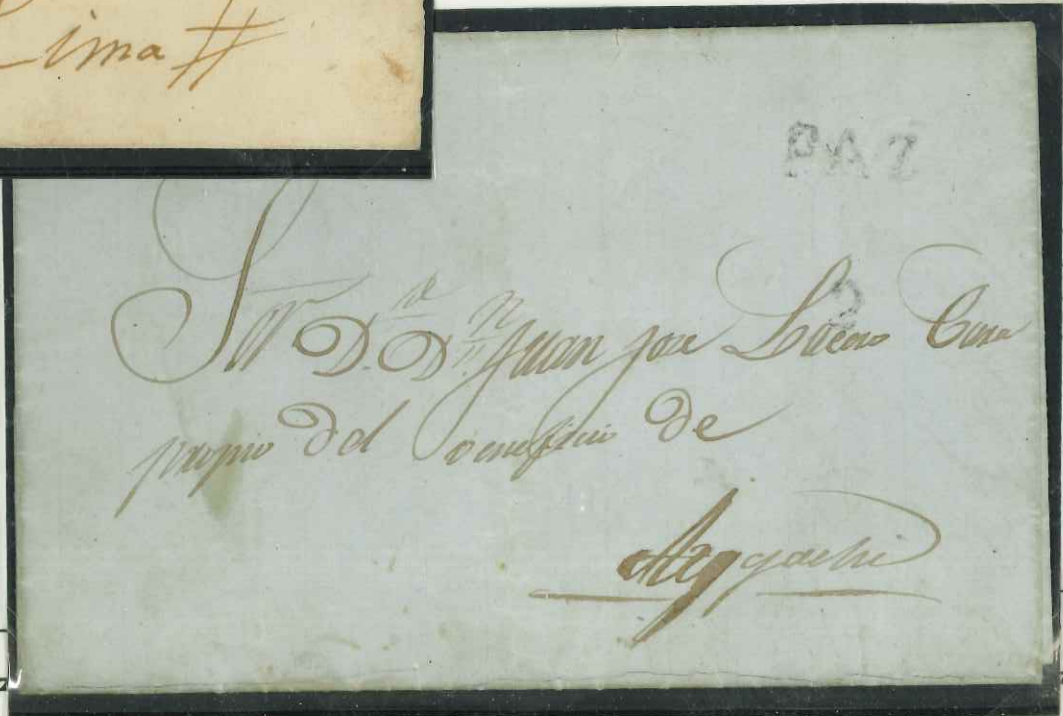 Lima
PAZ
2
Sor D.D.n Juan Jose Lucero Cura
propio del veneficio de